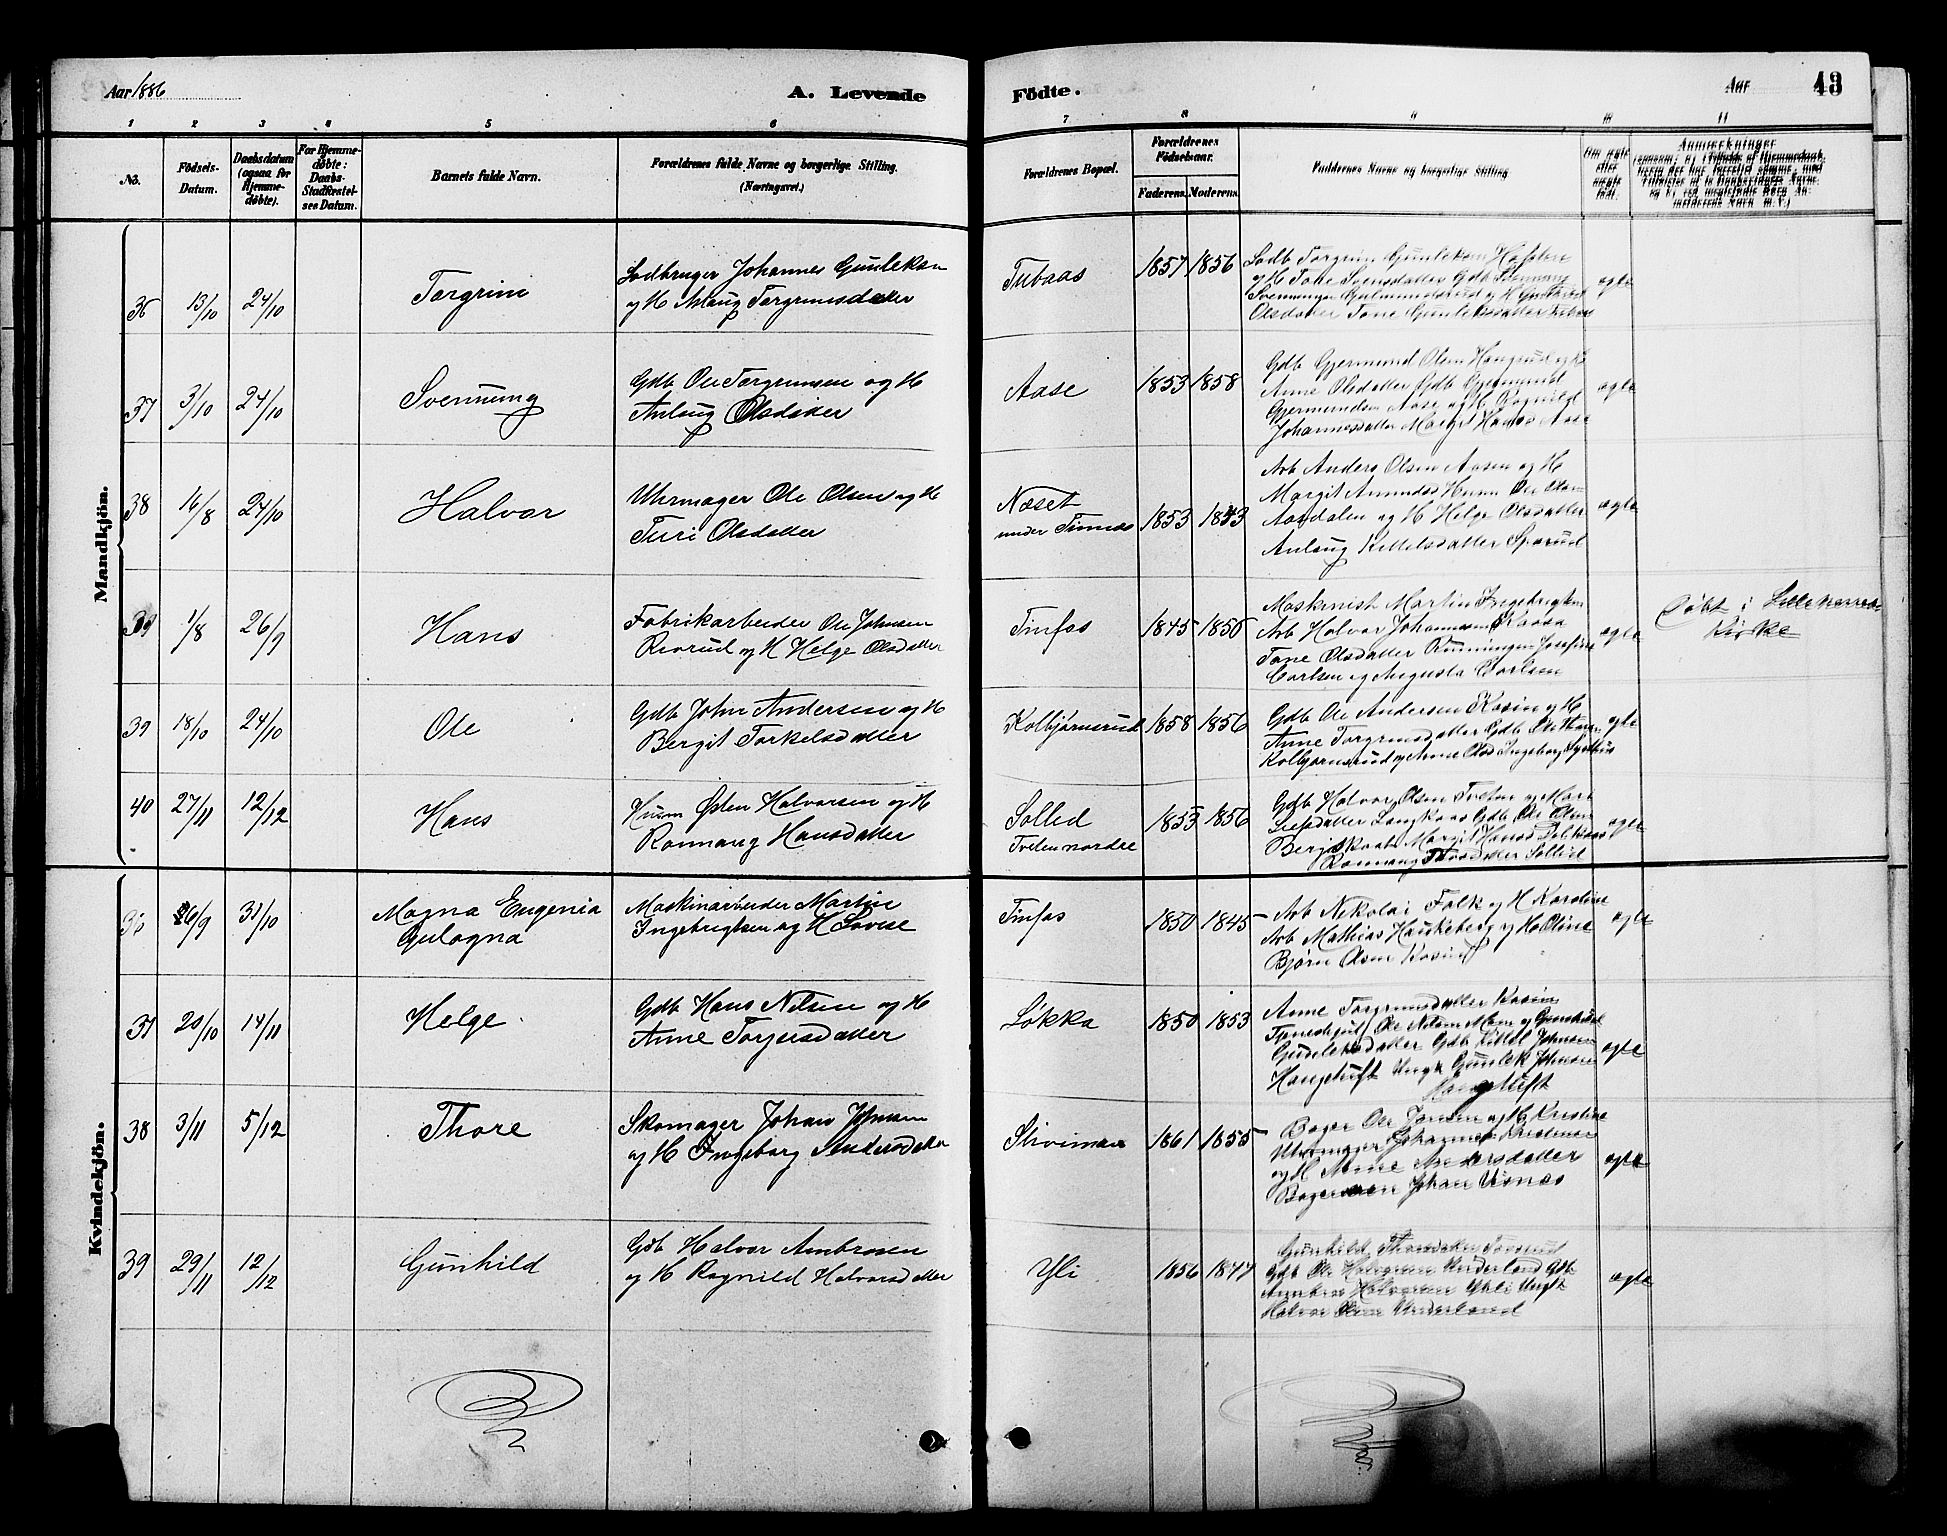 Aar 1886
A. Levende
Födte.
Aar
43
1 2 3 4 5 6 7 8 9 10 11
No.
Födsels-
Datum.
Daabsdatum
(ogsaa for
Hjemme-
döbte).
For Hjemme-
döbte:
Daabs-
Stadfæstel-
ses Datum.
Barnets fulde Navn.
Forældrenes fulde Navne og borgerlige Stilling.
(Næringsvei.)
Forældrenes Bopæl.
Forældrenes
Födselsaar.
Faderens.
Moderens.
Faddernes Navne og borgerlige Stilling
Om ægte
eller
uægte
født.
Anmærkninger
Mandkjön.
36 13/10 24/10 Torgrim
Lodbruger Johannes Gunleksen
og H Aslaug Torgrimsdatter
Tubaas 1857 1856
Torgrim Gunleksen
og H Tone Svensdatter Gdb
Olsdatter Tone Gunleksdatter
ægte
37 3/10 24/10 Svennung
Gdb Ole Torgrimsen og H
Anlaug Olsdatter
Aase 1853 1858
Gdb Gjermund Olsen Haugrud og H
Anne Olsdatter Gdb Gjermund
Gjermundsen Aase og H Ragnild
Johannesdatter Margit Hansd Aase
ægte
38 16/8 24/10 Halvor
Uhrmager Ole Olsen og H
Turi Olsdatter
Næset
under Tinnæs
1853 1853
Arb Anders Olsen Aasen og H
Margit Amundsd Husm Ole Olsen
Aardalen og H Helge Olsdatter
Anlaug Kittelsdatter Sparud
ægte
39 1/8 26/9 Hans
Fabrikarbeider Ole Johnsen
Revrud og H Helge Olsdatter
Tinfos 1845 1850
Maskinist Martin Ingebrigtsen
Arb Halvor Johannesen Kaasa
Tone Olsdatter Runningen Josefine
Carlsen og Augusta Carlsen
ægte
Døbt i Lilleherred
Kirke
39 18/10 24/10 Ole
Gdb John Andersen og H
Bergit Torkelsdatter
Kolbjørnsrud 1858 1856
Gdb Ole Andersen Kosin og H
Anne Torgrimsdatter Gdb Ole
Kolbjørnsrud og Anne Olsd Ingeborg
ægte
40 27/11 12/12 Hans
Husm Østen Halvorsen og H
Ronnaug Hansdatter
Solled
Tveten nordre
1853 1856
Gdb Halvor Olsen Tveten og Mari
Leifsdatter Langkaas Gdb Ole Olsen
Margit Hansd
Ronnaug Solled
ægte
Kvindekjön.
36 26/9 31/10 Magna Eugenia
Gulagna
Maskinarbeider Martin
Ingebrigtsen og H Lovise
Tinfos 1850 1845
Arb Nikolai Falk og H Karoline
Arb Mathias Haukeberg og H Oline
Bjørn Olsen Kosin
ægte
37 20/10 14/11 Helge
Gdb Hans Nilsen og H
Anne Torjersdatter
Løkka 1850 1853
Anne Torgrimsdatter Kosin
Ole Nilsen Moen og Gunhild
Gunleksdatter Gdb Kittel Johnsen
Haugetuft Ungk Gunlek Johnsen
Haugetuft
ægte
38 3/11 5/12 Thore
Skomager Johan Johnsen
og H Ingeborg Andersdatter
1861 1855
Bager Ole Jensen og H Kristine
Uhrmager Johannes Kristensen
og H Anne Andersdatter
Johan Visnæs
ægte
39 29/11 12/12 Gunhild
Gdb Halvor Ambrosen
og H Ragnild Halvorsdatter
Yli 1856 1847
Gunhild Thorsdatter
Gdb Ole Halvorsen Underland Gdb
Ambros Halvorsen Yli Ungk
Halvor Olsen Underland
ægte